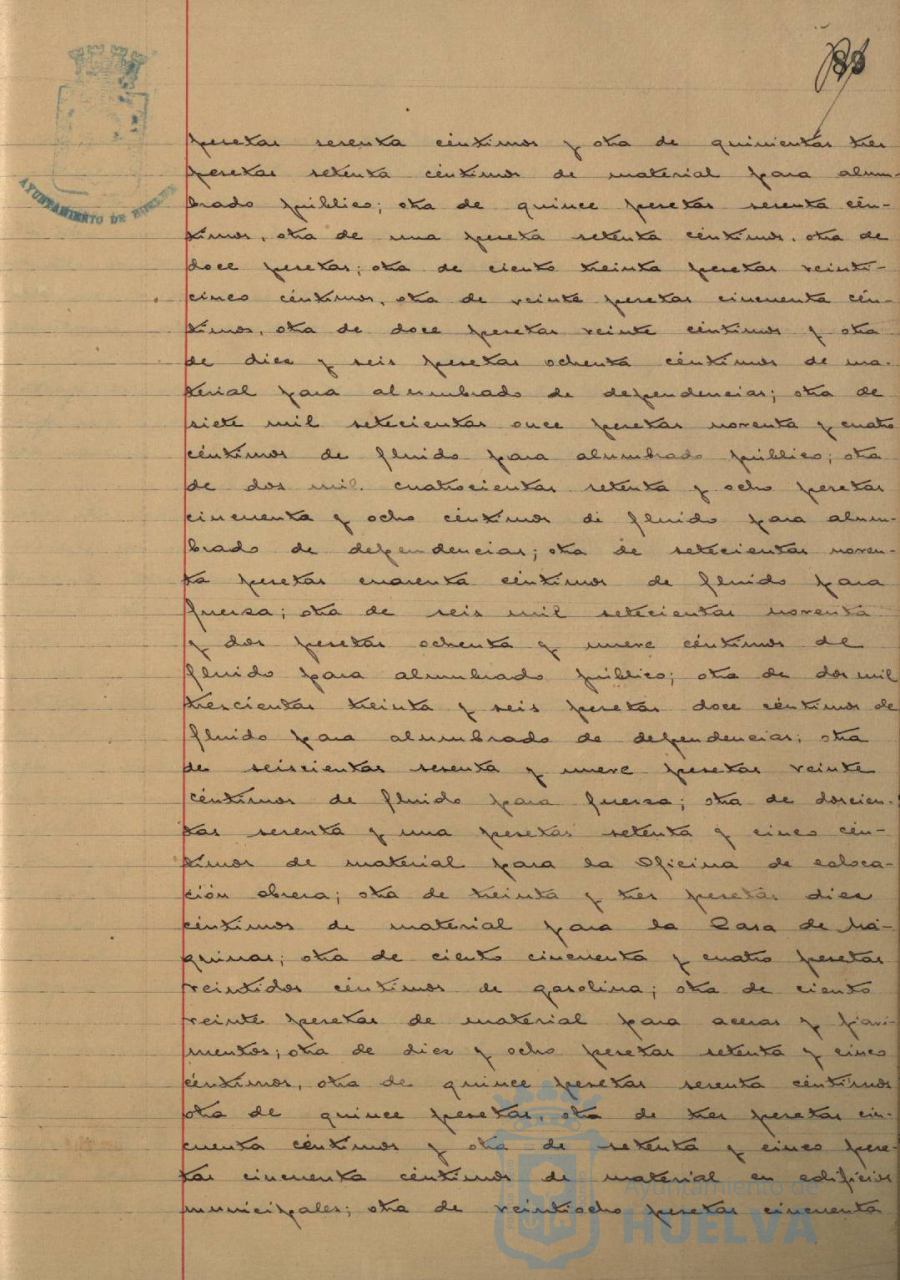 89
AYUNTAMIENTO DE HUELVA
pesetas sesenta céntimos y otra de quinientas tres
pesetas setenta céntimos de material para alum-
brado público; otra de quince pesetas sesenta cén-
timos, otra de una peseta setenta céntimos, otra de
doce pesetas; otra de ciento treinta pesetas veinti-
cinco céntimos, otra de veinte pesetas cincuenta cén-
timos, otra de doce pesetas veinte céntimos y otra
de diez y seis pesetas ochenta céntimos de ma-
terial para alumbrado de dependencias; otra de
siete mil setecientas once pesetas noventa y cuatro
céntimos de fluido para alumbrado público; otra
de dos mil cuatrocientas setenta y ocho pesetas
cincuenta y ocho céntimos de fluido para alum-
brado de dependencias; otra de setecientas noven-
ta pesetas cuarenta céntimos de fluido para
fuerza; otra de seis mil setecientas noventa
y dos pesetas ochenta y nueve céntimos de
fluido para alumbrado público; otra de dos mil
trescientas treinta y seis pesetas doce céntimos de
fluido para alumbrado de dependencias; otra
de seiscientas sesenta y nueve pesetas veinte
céntimos de fluido para fuerza; otra de doscien-
tas sesenta y una pesetas setenta y cinco cén-
timos de material para la Oficina de coloca-
ción obrera; otra de treinta y tres pesetas diez
céntimos de material para la Casa de Má-
quinas; otra de ciento cincuenta y cuatro pesetas
veintidos céntimos de gasolina; otra de ciento
veinte pesetas de material para aceras y pavi-
mentos; otra de diez y ocho pesetas setenta y cinco
céntimos, otra de quince pesetas sesenta céntimos
otra de quince pesetas, otra de tres pesetas cin-
cuenta céntimos y otra de setenta y cinco pese-
tas cincuenta céntimos de material en edificios
municipales; otra de veintiocho pesetas cincuenta
Ayuntamiento de
HUELVA